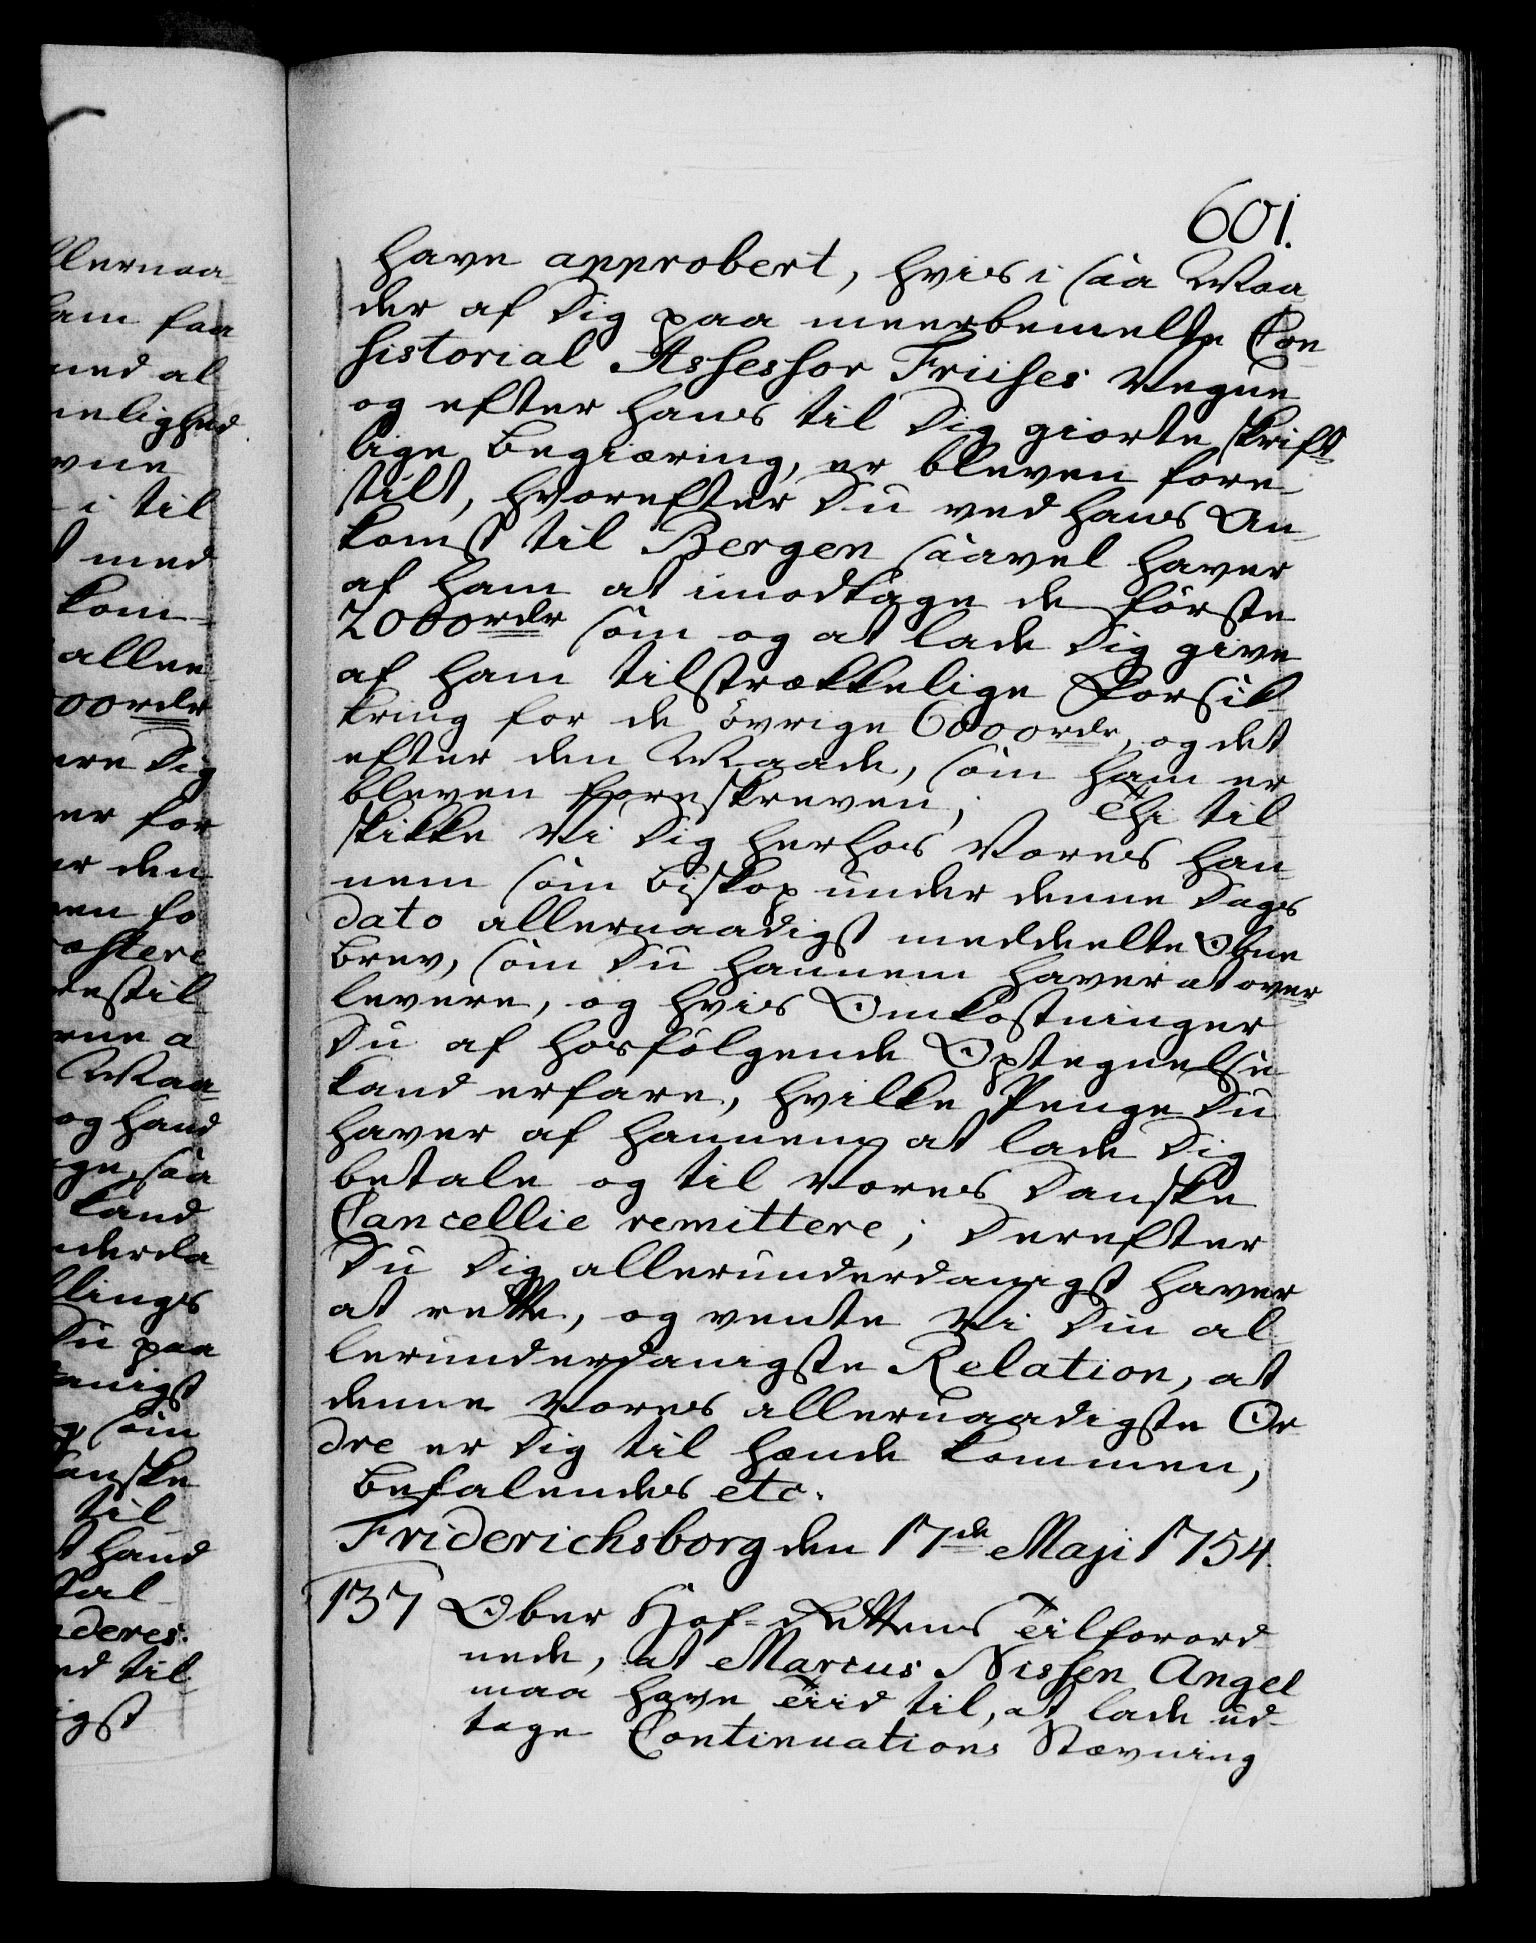 601.
have approbert, hvis i saa Maa-
der af Dig paa meerbemelte Con-
sistorial Assessor Friises Vegne
og efter hans til Dig giorte skrift-
lige Begiæring, er bleven fore-
stilt, hvorefter Du ved hans An-
komst til Bergen saavel haver
af ham at imodtage de første
2000 rdr som og at lade Dig give
af ham tilstrækkelige Forsik-
kring for de øvrige 6000 rdr, og det
efter den Maade, som ham er
bleven foreskreven; Thi til-
skikke Vi Dig herhos Vores han-
nem som Biskop under denne Dags
dato allernaadigst meddeelte Obne
Brev, som Du hannem haver at over-
levere, og hvis Omkostninger
Du af hosfølgende Optegnelse
kand erfare, hvilke Penge Du
haver af hannem at lade Dig
betale og til Vores Danske
Cancellie remittere; Derefter
Du Dig allerunderdanigst haver
at rette, og vente Vi Din al-
lerunderdanigste Relation, at
denne Vores allernaadigste Or-
dre er Dig til hænde kommen,
Befalendes etc.
Friderichsborg den 17de Maji 1754.
137 Ober Hof-Rettens Tilforord-
nede, at Marcus Nissen Angel
maa have Tiid til, at lade ud-
tage Continuations Stævning